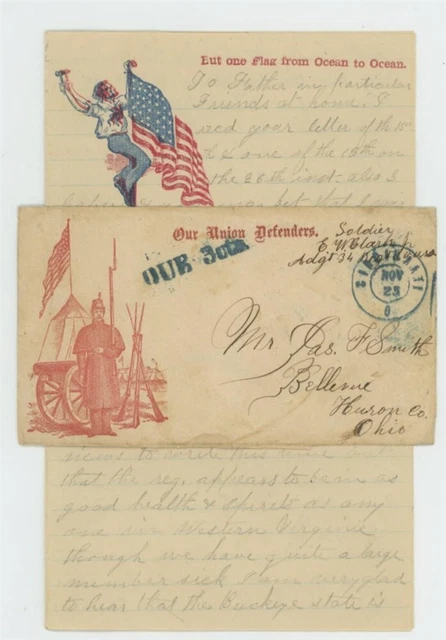 But one Flag from Ocean to Ocean.
To Father in particular
Friends at home. I
recd your letter of the 15th
& one of the 18th on
the 26th inst also I
Our Union Defenders.
Soldier
Adgt 34
DUE 3cts
CINCINNATI
NOV
23
O.
Mr. Jas. F Smith
Bellevue
Huron Co.
Ohio
news to write this time but
that the reg. appears to be in as
good health & spirits as any
one in Western Virginia
though we have quite a large
number sick I am very glad
to hear that the Buckeye state is